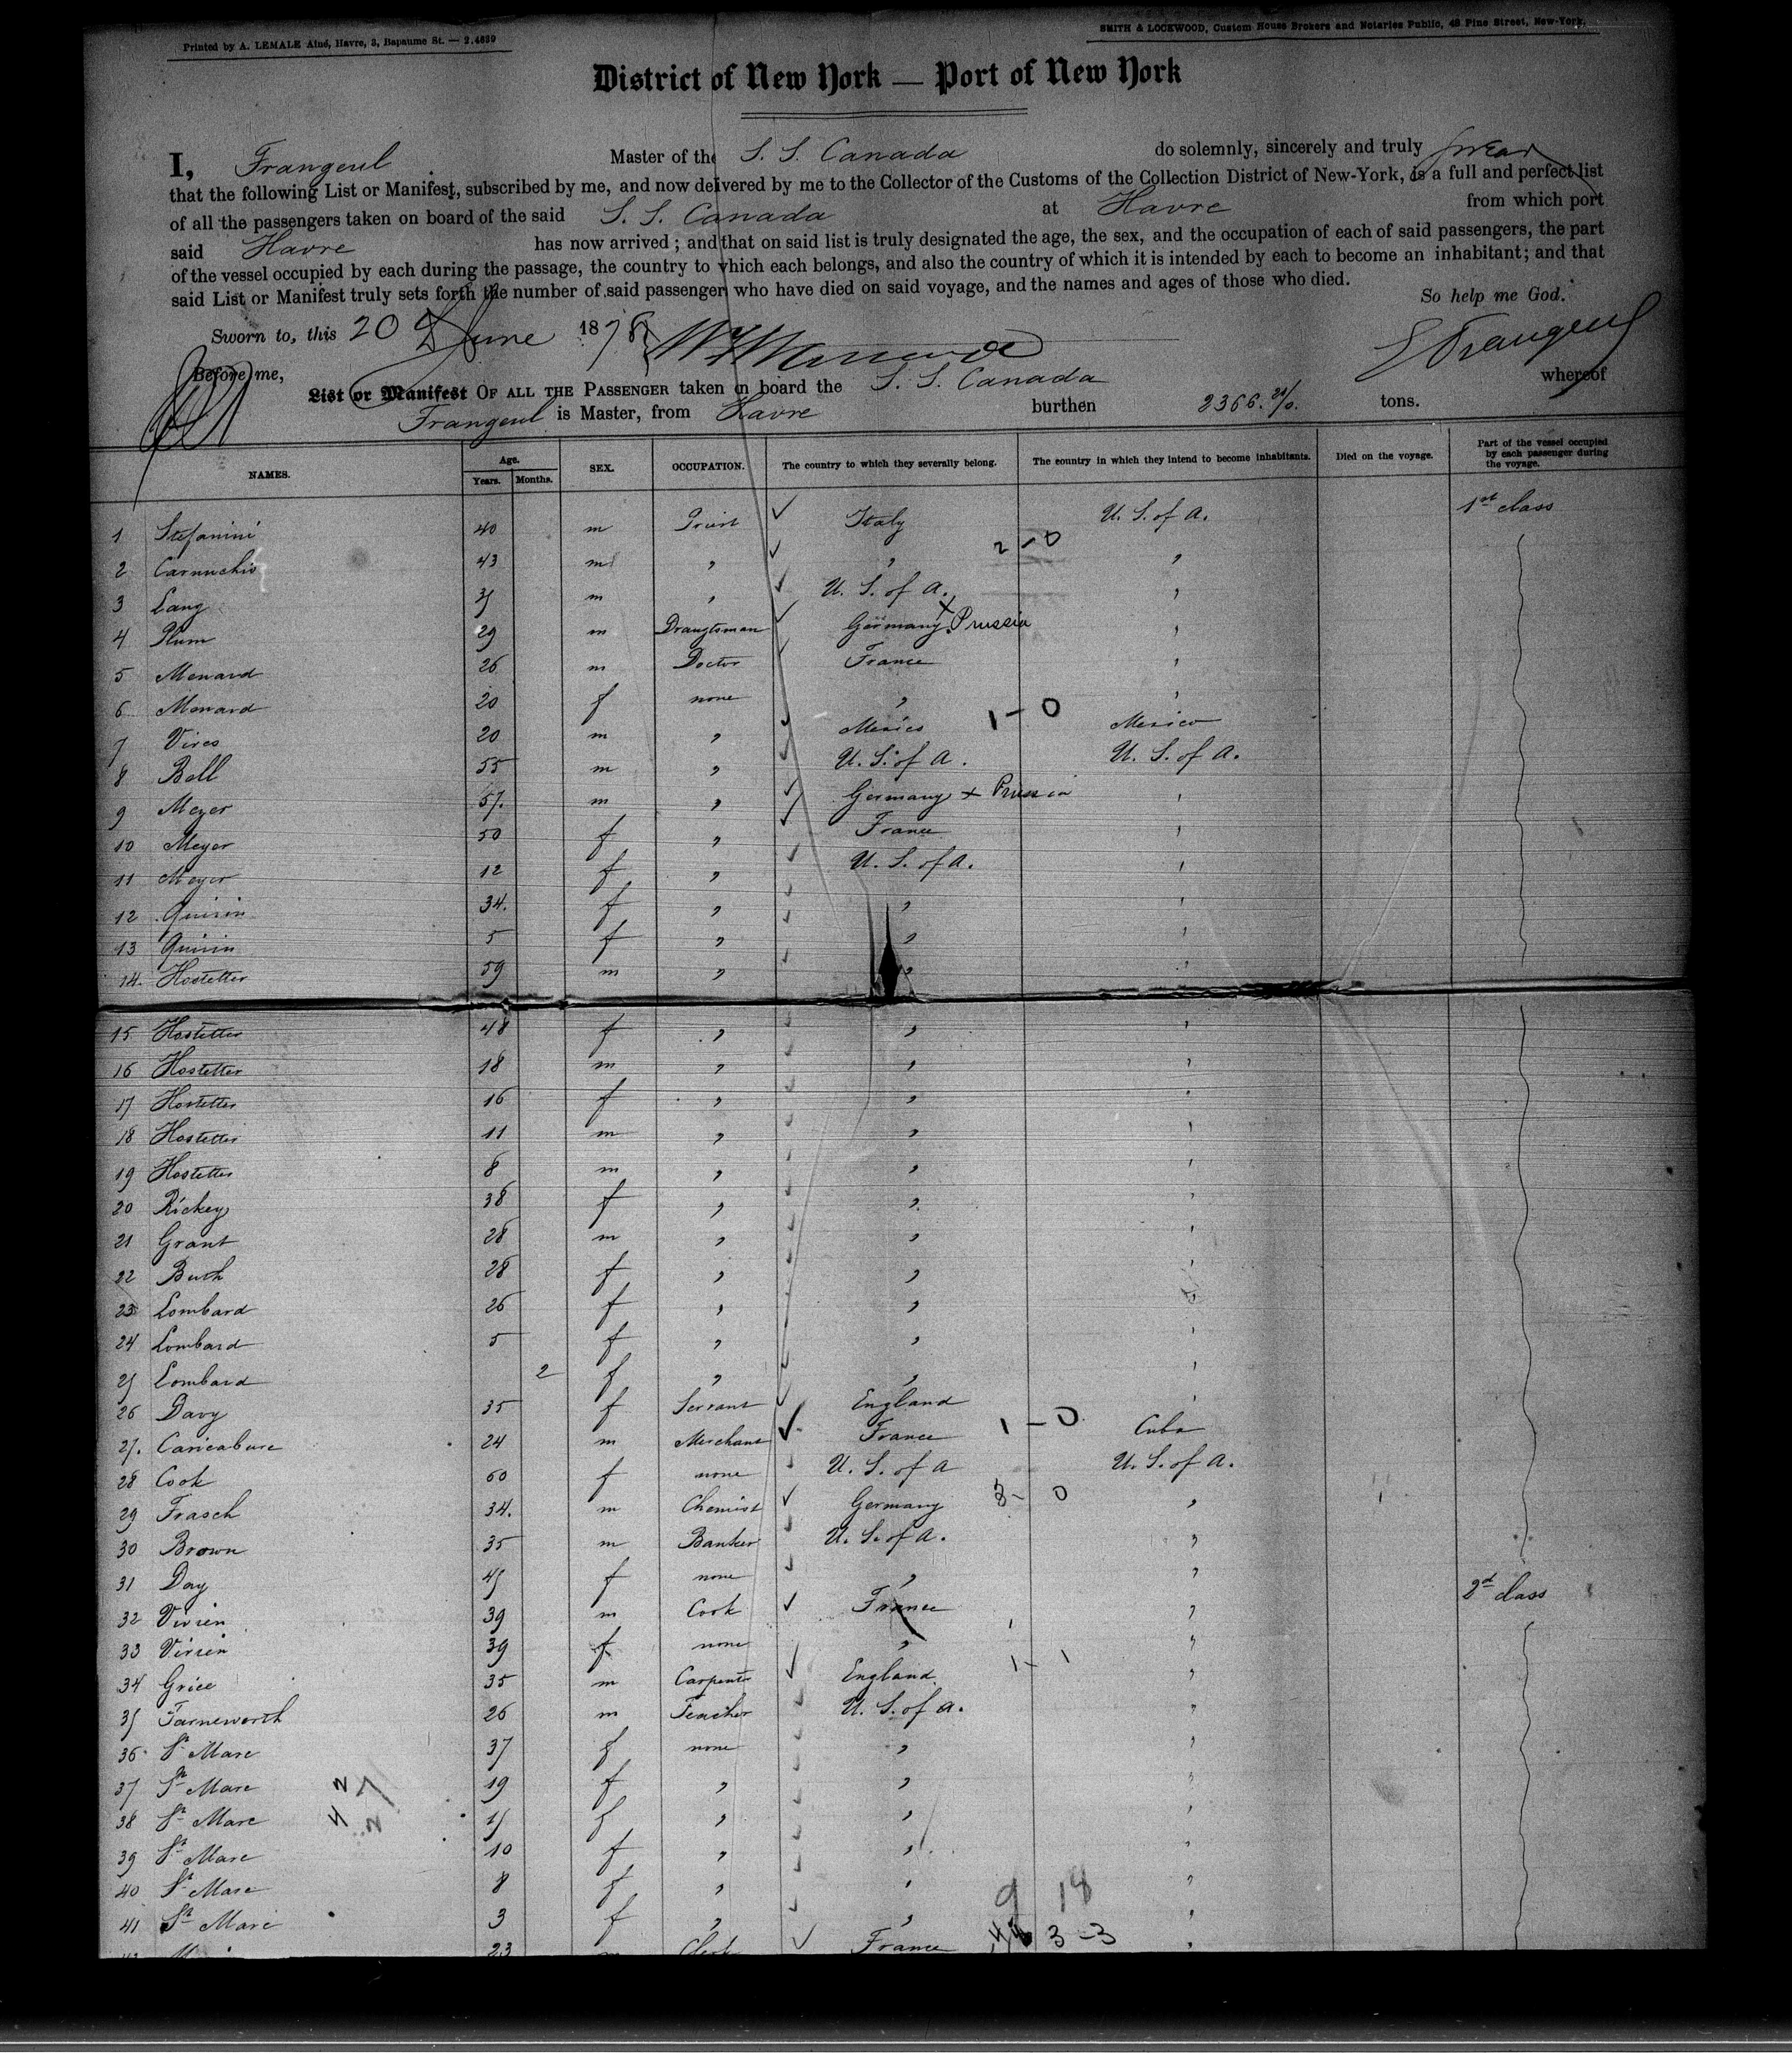 Printed by A. LEMALE Aîné, Havre, 3, Bapaume St. — 2.4639
SMITH & LOCKWOOD, Custom House Brokers and Notaries Public, 48 Pine Street, New-York.
District of New York — Port of New York
I, Frangeul Master of the S. S. Canada do solemnly, sincerely and truly swear
that the following List or Manifest, subscribed by me, and now delivered by me to the Collector of the Customs of the Collection District of New-York, is a full and perfect list
of all the passengers taken on board of the said S. S. Canada at Havre from which port
said Havre has now arrived ; and that on said list is truly designated the age, the sex, and the occupation of each of said passengers, the part
of the vessel occupied by each during the passage, the country to which each belongs, and also the country of which it is intended by each to become an inhabitant; and that
said List or Manifest truly sets forth the number of said passenger who have died on said voyage, and the names and ages of those who died.
So help me God.
Sworn to, this 20 June 1878
E Frangeul
Before me,
List or Manifest OF ALL THE PASSENGER taken on board the S. S. Canada whereof
Frangeul is Master, from Havre burthen 2366. tons.
NAMES. Age. Years. Months. SEX. OCCUPATION. The country to which they severally belong. The country in which they intend to become inhabitants. Died on the voyage. Part of the vessel occupied by each passenger during the voyage.
1 Stefanini 40 m Priest Italy U. S. of A. 1st class
2 Carnuchio 43 m " " 2-0 "
3 Lang 35 m " U. S. of A. "
4 Plum 29 m Draugtsman Germany x Prussia "
5 Menard 26 m Doctor France "
6 Menard 20 f none " "
7 Vires 20 m " Mexico 1-0 Mexico
8 Bell 55 m " U. S. of A. U. S. of A.
9 Meyer 57. m " Germany + Prussia "
10 Meyer 50 f " France "
11 Meyer 12 f " U. S. of A. "
12 Quirin 34. f " " "
13 Quirin 5 f " " "
14. Hostetter 59 m " " "
15 Hostetter 48 f " " "
16 Hostetter 18 m " " "
17 Hostetter 16 f " " "
18 Hostetter 11 m " " "
19 Hostetter 8 m " " "
20 Rickey 38 f " " "
21 Grant 28 m " " "
22 Buth 28 f " " "
23 Lombard 26 f " " "
24 Lombard 5 f " " "
25 Lombard 2 f " " "
26 Davy 35 f Servant England "
27. Caricabure 24 m Merchant France 1-0 Cuba
28 Cook 60 f none U. S. of A U. S. of A.
29 Frasch 34. m Chemist Germany 3-0 "
30 Brown 35 m Banker U. S. of A. "
31 Day 45 f none " " 2d class
32 Vivien 39 m Cook France "
33 Vivien 39 f none " "
34 Grice 35 m Carpenter England 1-1 "
35 Farneworth 26 m Teacher U. S. of A. "
36. St Marc 37 f none " "
37 St Marc 19 f " " "
38 St Marc 15 f " " "
39 St Marc 10 f " " "
40 St Marc 8 f " " "
41 St Marc 3 f " " "
9 18
23 m Clerk France 3-3 "